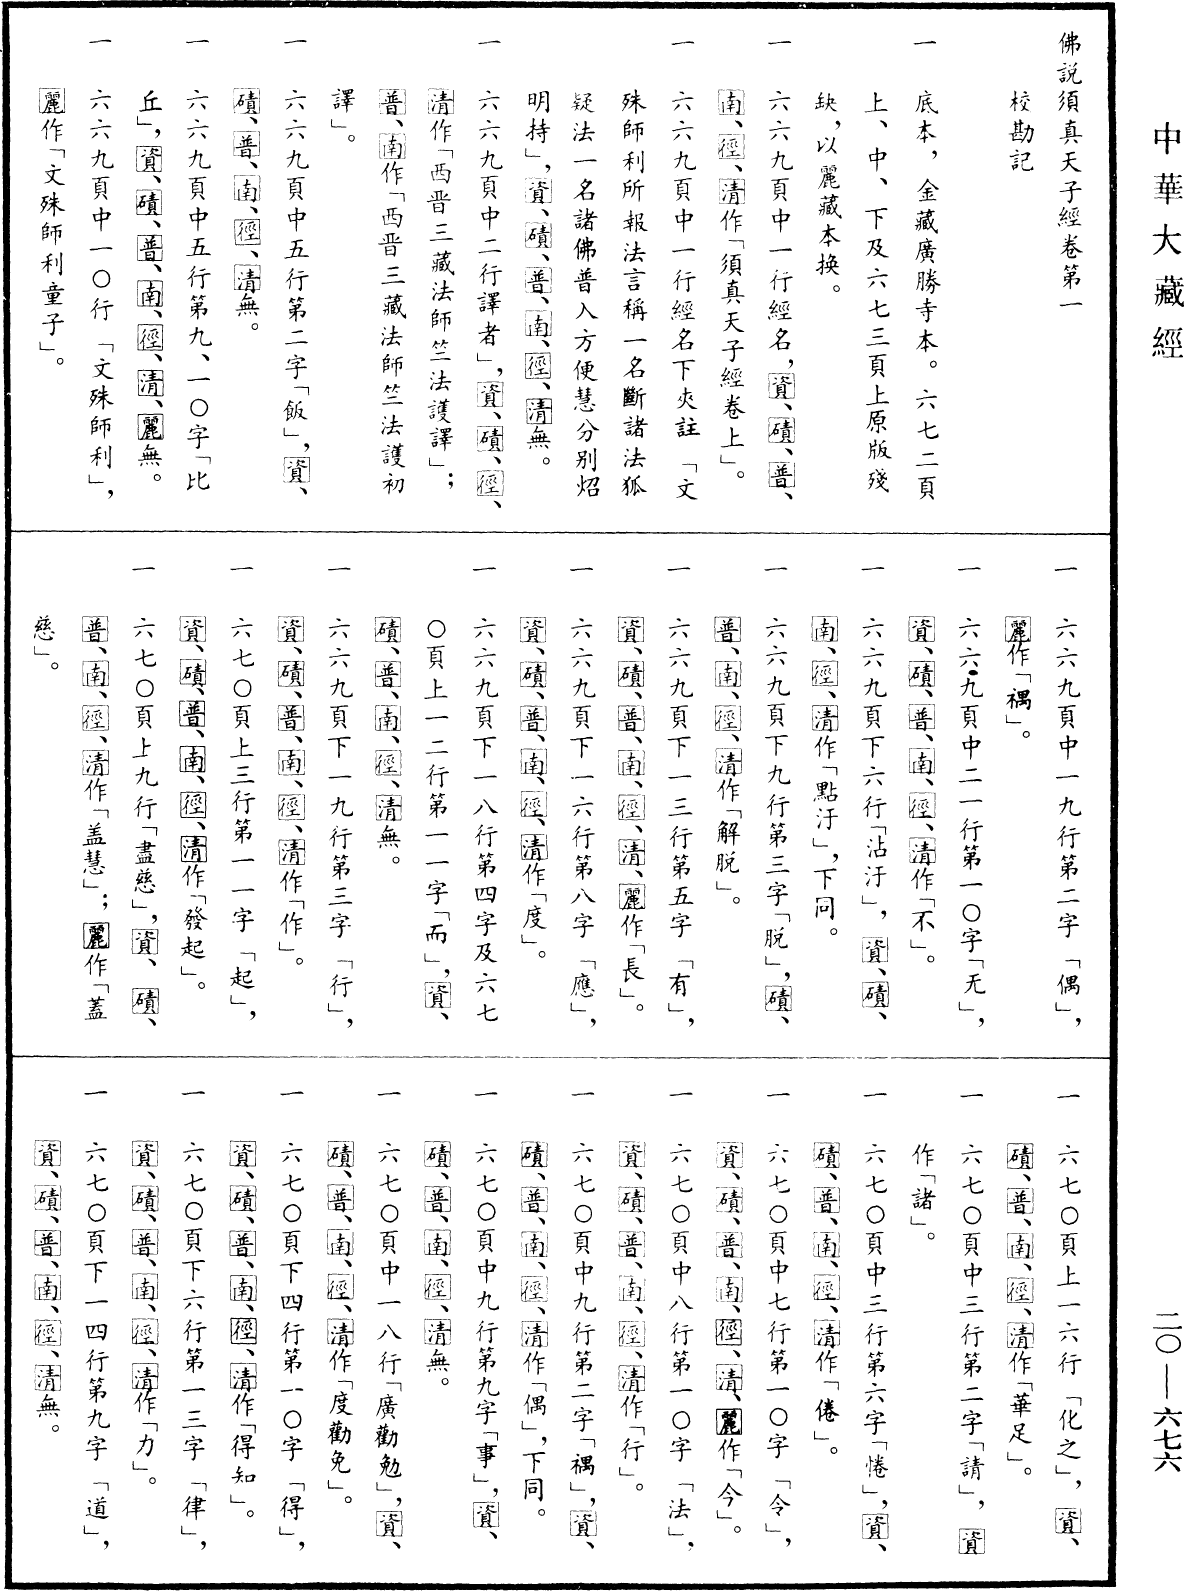 中華大藏經
二〇—六七六
佛説須真天子經卷第一
校勘記
一 底本，金藏廣勝寺本。六七二頁
上、中、下及六七三頁上原版殘
缺，以麗藏本换。
一 六六九頁中一行經名，資、磧、普、
南、徑、清作「須真天子經卷上」。
一 六六九頁中一行經名下夾註「文
殊師利所報法言稱一名斷諸法狐
疑法一名諸佛普入方便慧分别炤
明持」，資、磧、普、南、徑、清無。
一 六六九頁中二行譯者，資、磧、徑、
清作「西晋三藏法師竺法護譯」；
普、南作「西晋三藏法師竺法護初
譯」。
一 六六九頁中五行第二字「飯」，資、
磧、普、南、徑、清無。
一 六六九頁中五行第九、一〇字「比
丘」，資、磧、普、南、徑、清、麗無。
一 六六九頁中一〇行「文殊師利」，
麗作「文殊師利童子」。
一 六六九頁中一九行第二字「偶」，
麗作「禑」。
一 六六九頁中二一行第一〇字「无」，
資、磧、普、南、徑、清作「不」。
一 六六九頁下六行「沾汙」，資、磧、
南、徑、清作「點汙」，下同。
一 六六九頁下九行第三字「脱」，磧、
普、南、徑、清作「解脱」。
一 六六九頁下一三行第五字「有」，
資、磧、普、南、徑、清、麗作「長」。
一 六六九頁下一六行第八字「應」，
資、磧、普、南、徑、清作「度」。
一 六六九頁下一八行第四字及六七
〇頁上一二行第一一字「而」，資、
磧、普、南、徑、清無。
一 六六九頁下一九行第三字「行」，
資、磧、普、南、徑、清作「作」。
一 六七〇頁上三行第一一字「起」，
資、磧、普、南、徑、清作「發起」。
一 六七〇頁上九行「盡慈」，資、磧、
普、南、徑、清作「盖慧」；麗作「蓋
慈」。
一 六七〇頁上一六行「化之」，資、
磧、普、南、徑、清作「華足」。
一 六七〇頁中三行第二字「請」，資
作「諸」。
一 六七〇頁中三行第六字「惓」，資、
磧、普、南、徑、清作「倦」。
一 六七〇頁中七行第一〇字「令」，
資、磧、普、南、徑、清、麗作「今」。
一 六七〇頁中八行第一〇字「法」，
資、磧、普、南、徑、清作「行」。
一 六七〇頁中九行第二字「禑」，資、
磧、普、南、徑、清作「偶」，下同。
一 六七〇頁中九行第九字「事」，資、
磧、普、南、徑、清無。
一 六七〇頁中一八行「廣勸勉」，資、
磧、普、南、徑、清作「度勸免」。
一 六七〇頁下四行第一〇字「得」，
資、磧、普、南、徑、清作「得知」。
一 六七〇頁下六行第一三字「律」，
資、磧、普、南、徑、清作「力」。
一 六七〇頁下一四行第九字「道」，
資、磧、普、南、徑、清無。